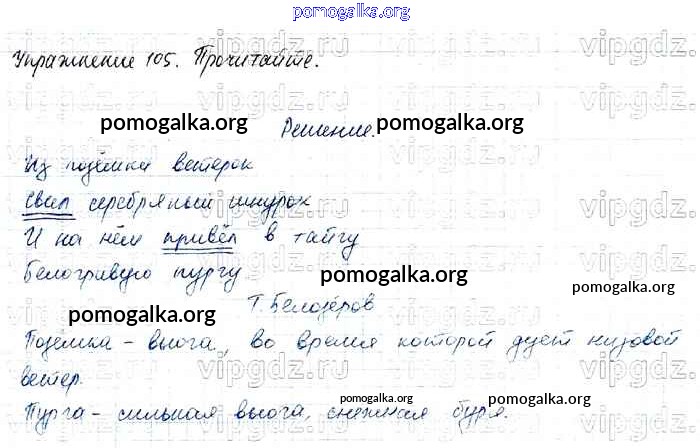 pomogalka.org
Упражнение 105. Прочитайте.
vipgdz.ru
pomogalka.org Решение. pomogalka.org
Из позёмки ветерок
Свил серебряный шнурок
pomogalka.org
И на нём привёл в тайгу
Белогривую пургу
pomogalka.org
pomogalka.org
Т. Белозёров
pomogalka.org
Позёмка - вьюга, во время которой дует низовой
ветер.
pomogalka.org
pomogalka.org
Пурга - сильная вьюга, снежная буря.